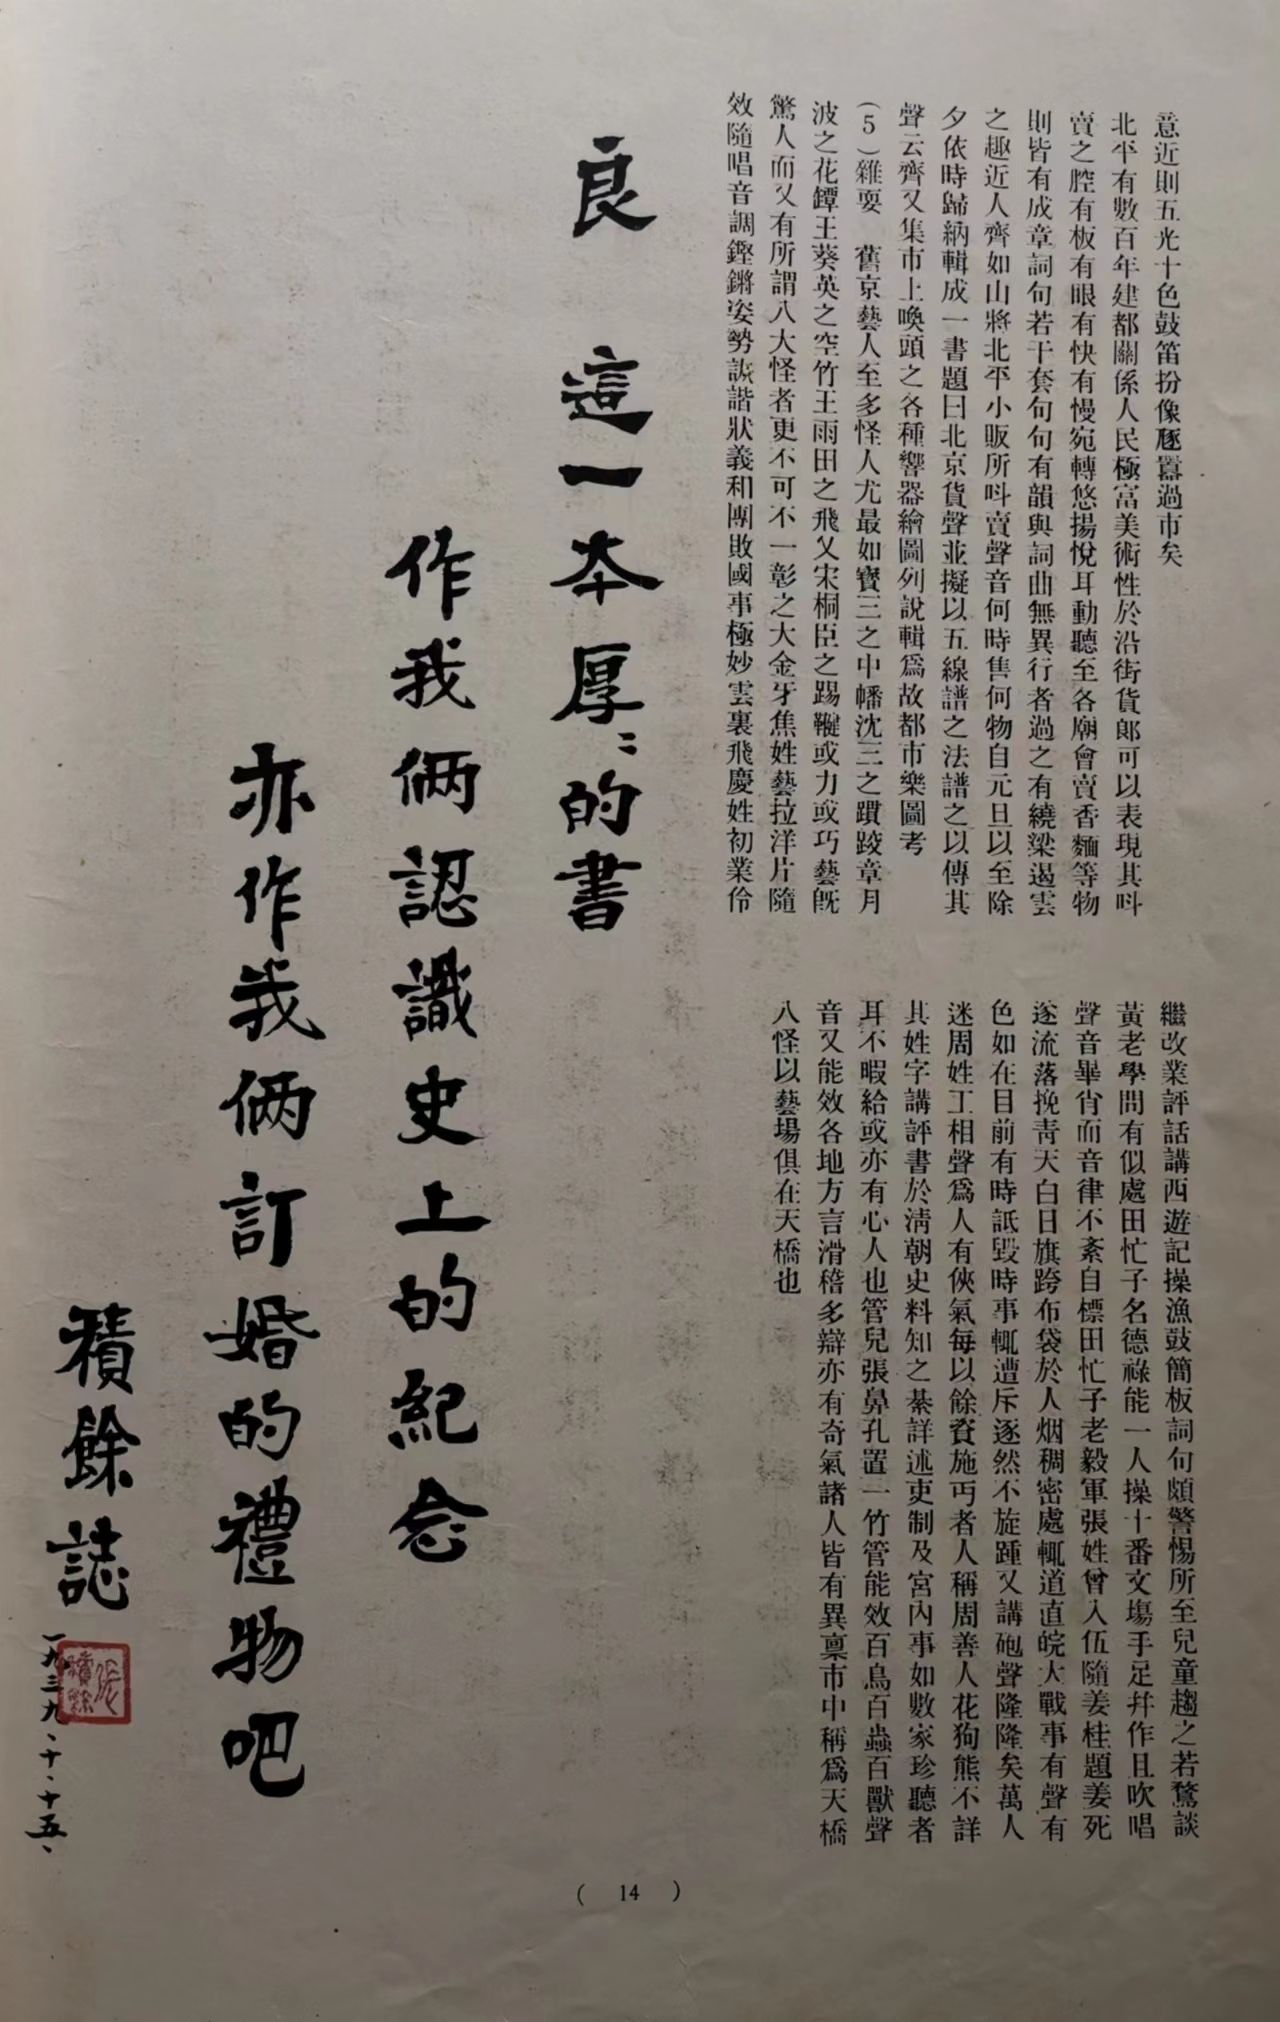 意近則五光十色鼓笛扮像豗囂過市矣
北平有數百年建都關係人民極富美術性於沿街貨郞可以表現其呌
賣之腔有板有眼有快有慢宛轉悠揚悅耳動聽至各廟會賣香麵等物
則皆有成章詞句若干套句句有韻與詞曲無異行者過之有繞梁遏雲
之趣近人齊如山將北平小販所呌賣聲音何時售何物自元旦以至除
夕依時歸納輯成一書題曰北京貨聲並擬以五線譜之法譜之以傳其
聲云齊又集市上喚頭之各種響器繪圖列說輯爲故都市樂圖考
(5)雜耍　舊京藝人至多怪人尤最如寶三之中幡沈三之躓跤章月
波之花罈王葵英之空竹王雨田之飛叉宋桐臣之踢毽或力或巧藝旣
驚人而又有所謂八大怪者更不可不一彰之大金牙焦姓藝拉洋片隨
效隨唱音調鏗鏘姿勢詼諧狀義和團敗國事極妙雲裏飛慶姓初業伶
繼改業評話講西遊記操漁鼓簡板詞句頗警惕所至兒童趨之若鶩談
黃老學問有似處田忙子名德祿能一人操十番文場手足幷作且吹唱
聲音畢肖而音律不紊自標田忙子老毅軍張姓曾入伍隨姜桂題姜死
遂流落挽靑天白日旗跨布袋於人烟稠密處輒道直皖大戰事有聲有
色如在目前有時詆毀時事輒遭斥逐然不旋踵又講砲聲隆隆矣萬人
迷周姓工相聲爲人有俠氣每以餘資施丐者人稱周善人花狗熊不詳
其姓字講評書於淸朝史料知之綦詳述吏制及宮內事如數家珍聽者
耳不暇給或亦有心人也管兒張鼻孔置一竹管能效百鳥百蟲百獸聲
音又能效各地方言滑稽多辯亦有奇氣諸人皆有異稟市中稱爲天橋
八怪以藝場俱在天橋也
良　這一本厚：的書
作我倆認識史上的紀念
亦作我倆訂婚的禮物吧
積餘誌
一九三九、十、十五、
張積餘
( 14 )